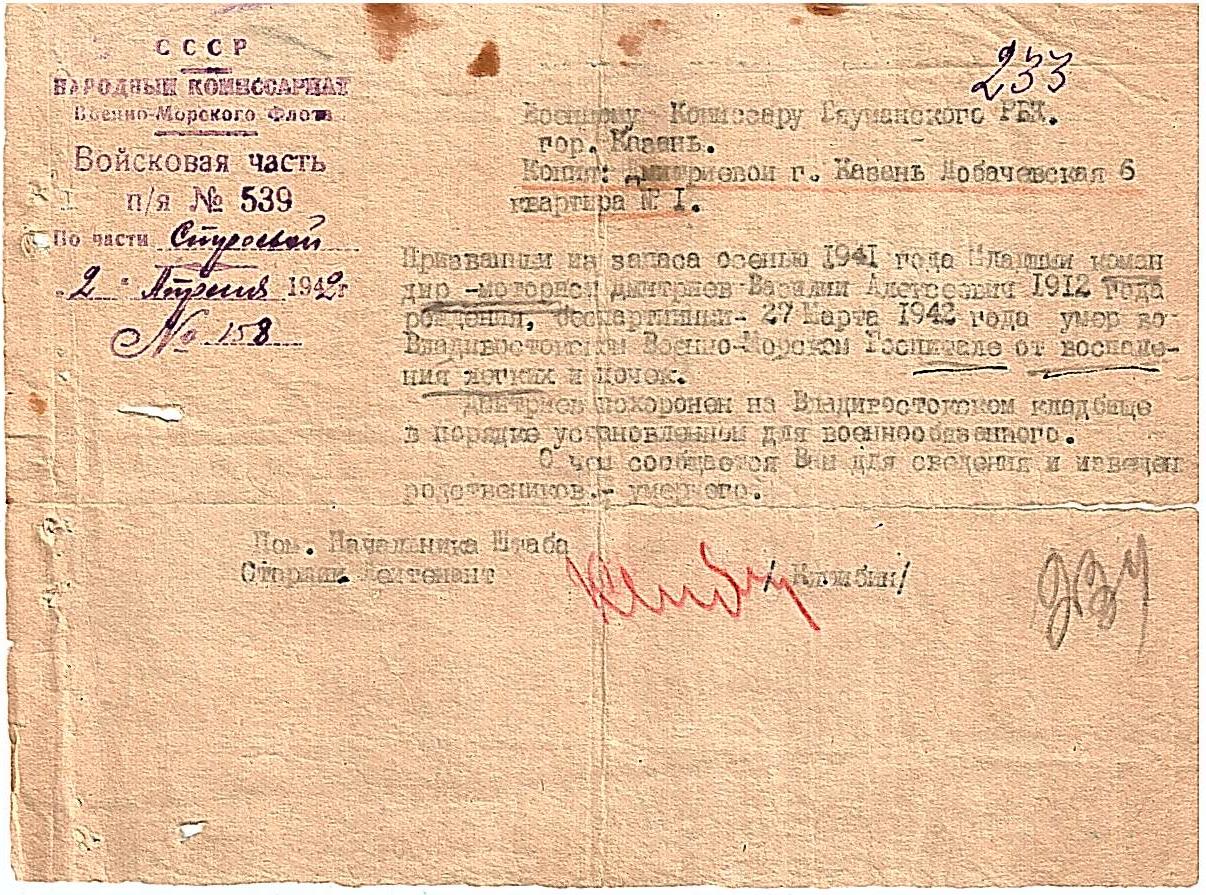 СССР
НАРОДНЫЙ КОМИССАРИАТ
Военно-Морского Флота
Войсковая часть
п/я № 539
По части Строевой
"2" Апреля 1942 г
№ 158
233
Военному Комиссару Бауманского РВК.
гор. Казань.
Копия: Дмитриевой г. Казань Лобачевская 6
квартира № I.
Призванный из запаса осенью 1941 года Младший коман
дир -моторист Дмитриев Василий Алексеевич 1912 года
рождения, беспартийный- 27 Марта 1942 года умер во
Владивостокском Военно-Морском Госпитале от воспале-
ния легких и почек.
Дмитриев похоронен на Владивостокском кладбище
в порядке установленном для военнообязанного.
О чем сообщается Вам для сведения и извещен
родственников.- умершего.
Пом. Начальника Штаба
Старший Лейтенант / /